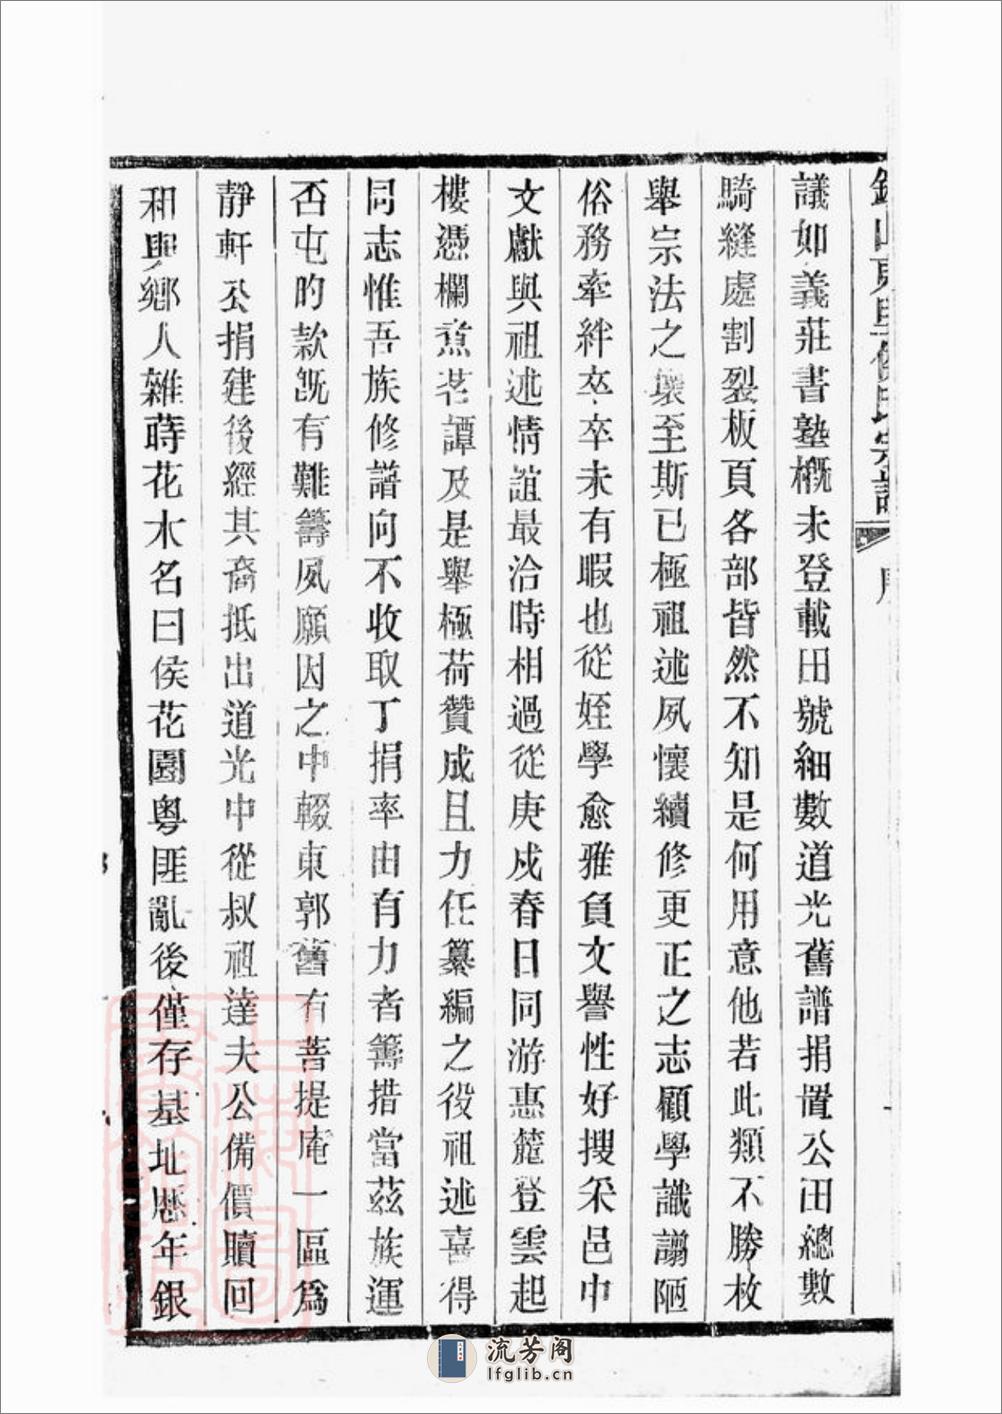 錫山東里侯氏宗譜 序
議如義莊書塾槪未登載田號細數道光舊譜捐置公田總數
騎縫處割裂板頁各部皆然不知是何用意他若此類不勝枚
舉宗法之壞至斯已極祖述夙懷續修更正之志顧學識謭陋
俗務牽絆卒卒未有暇也從姪學愈雅負文譽性好搜采邑中
文獻與祖述情誼最洽時相過從庚戍春日同游惠麓登雲起
樓憑欄煮茗譚及是舉極荷贊成且力任纂編之役祖述喜得
同志惟吾族修譜向不收取丁捐率由有力者籌措當茲族運
否屯的款旣有難籌夙願因之中輟東郭舊有菩提庵一區爲
靜軒公捐建後經其裔抵出道光中從叔祖達夫公備價贖回
租與鄉人雜蒔花木名曰侯花園粤匪亂後僅存基址歷年銀
流芳阁
lfglib.cn